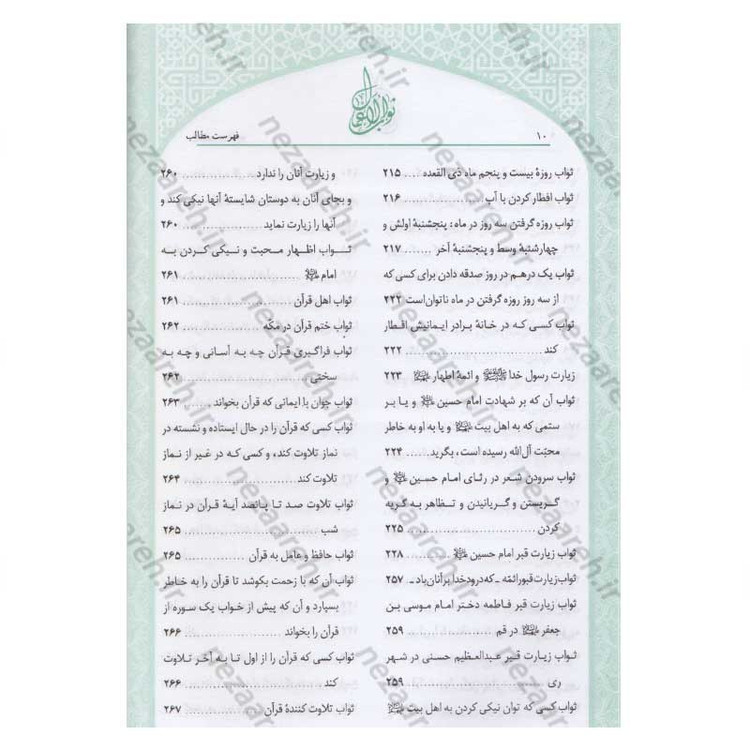 ثواب الاعمال
۱۰
فهرست مطالب
ثواب روزهٔ بیست و پنجم ماه ذی القعده ..... ۲۱۵
ثواب افطار کردن با آب ..... ۲۱۶
ثواب روزه گرفتن سه روز در ماه: پنجشنبهٔ اولش و
چهارشنبهٔ وسط و پنجشنبهٔ آخر ..... ۲۱۷
ثواب یک درهم در روز صدقه دادن برای کسی که
از سه روز روزه گرفتن در ماه ناتوان است ۲۲۲
ثواب کسی که در خانهٔ برادر ایمانیش افطار
کند ..... ۲۲۲
زیارت رسول خدا ﷺ و ائمهٔ اطهار ۲۲۳
ثواب آن که بر شهادت امام حسین و یا بر
ستمی که به اهل بیت و یا به او به خاطر
محبّت آل‌الله رسیده است، بگرید ..... ۲۲۴
ثواب سرودن شعر در رثای امام حسین و
گریستن و گریانیدن و تظاهر به گریه
کردن ..... ۲۲۵
ثواب زیارت قبر امام حسین ..... ۲۲۸
ثواب زیارت قبور ائمّه ـ که درود خدا بر آنان باد ـ ۲۵۷
ثواب زیارت قبر فاطمه دختر امام موسی بن
جعفر در قم ..... ۲۵۹
ثواب زیارت قبر عبدالعظیم حسنی در شهر
ری ..... ۲۵۹
ثواب کسی که توان نیکی کردن به اهل بیت
و زیارت آنان را ندارد ..... ۲۶۰
و بجای آنان به دوستان شایستهٔ آنها نیکی کند و
آنها را زیارت نماید ..... ۲۶۰
ثواب اظهار محبت و نیکی کردن به
امام ..... ۲۶۱
ثواب اهل قرآن ..... ۲۶۱
ثواب ختم قرآن در مکّه ..... ۲۶۲
ثواب فراگیری قرآن چه به آسانی و چه به
سختی ..... ۲۶۲
ثواب جوان با ایمانی که قرآن بخواند ..... ۲۶۳
ثواب کسی که قرآن را در حال ایستاده و نشسته در
نماز تلاوت کند، و کسی که در غیر از نماز
تلاوت کند ..... ۲۶۴
ثواب تلاوت صد تا پانصد آیهٔ قرآن در نماز
شب ..... ۲۶۵
ثواب حافظ و عامل به قرآن ..... ۲۶۵
ثواب آن که با زحمت بکوشد تا قرآن را به خاطر
بسپارد و آن که پیش از خواب یک سوره از
قرآن را بخواند ..... ۲۶۶
ثواب کسی که قرآن را از اول تا به آخر تلاوت
کند ..... ۲۶۶
ثواب تلاوت کنندهٔ قرآن ..... ۲۶۷
nezaareh.ir